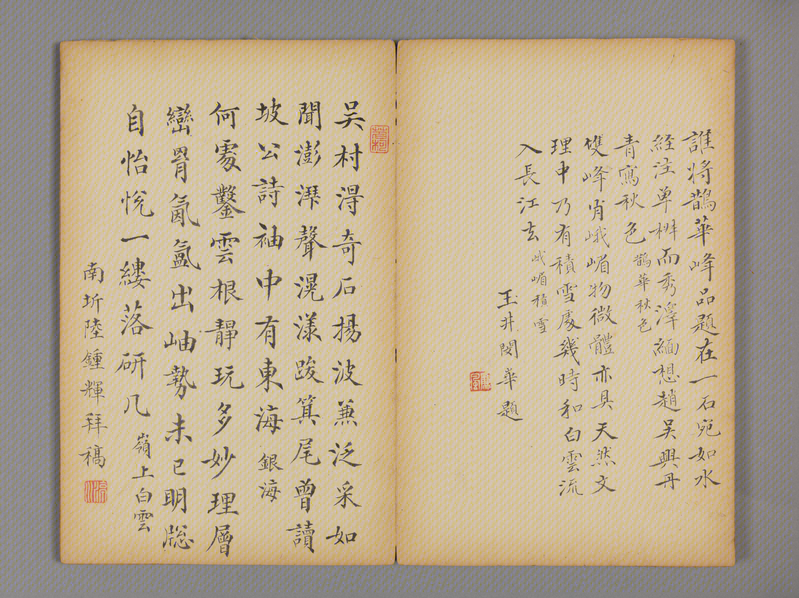 誰将鵲華峰品題在一石宛如水
經注單椒而秀澤緬想趙吳興丹
青寫秋色 鵲華秋色
雙峰肖峨嵋物微體亦具天然文
理中乃有積雪處幾時和白雲流
入長江去 峨嵋積雪
玉井閔華題
吳村淂奇石揚波兼泛采如
聞澎湃聲滉漾跋箕尾曾讀
坡公詩袖中有東海 銀海
何處鑿雲根靜玩多妙理層
巒胃氤氳出岫勢未已明牎
自怡悅一縷落研几 嶺上白雲
南圻陸鍾輝拜稿